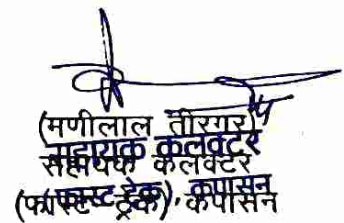 (मणीलाल तीरगर)
सहायक कलेक्टर
(फास्ट ट्रेक), कपासन